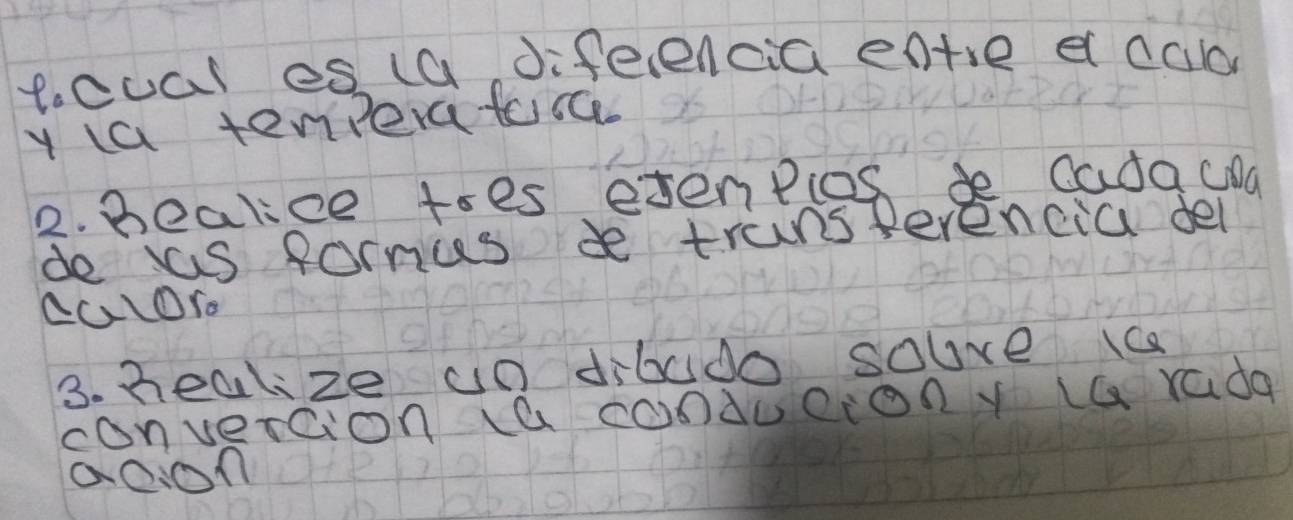 1. cual es la diferencia entre el calor
y la temperatura.
2. Realice tres ejemplos de cada una
de las formas de transferencia del
calor.
3. Realize un dibudo sobre la
convercion la conducion y la rada
acion